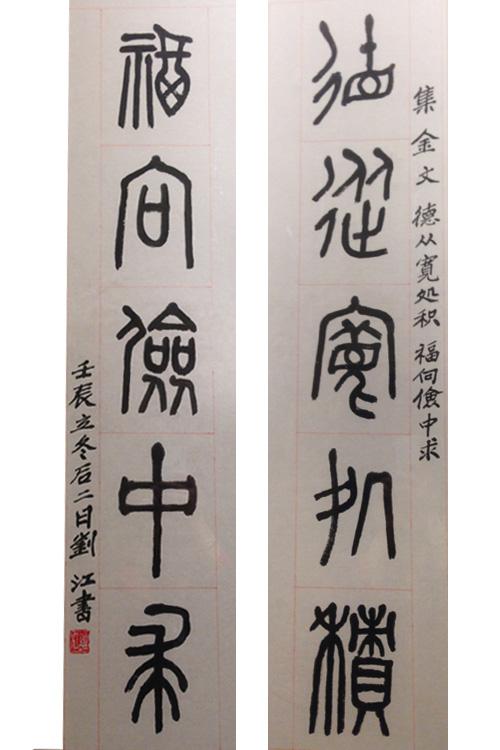 集金文 德从寛处积 福向儉中求
德從寬処積
福向儉中求
壬辰立冬后二日劉江書